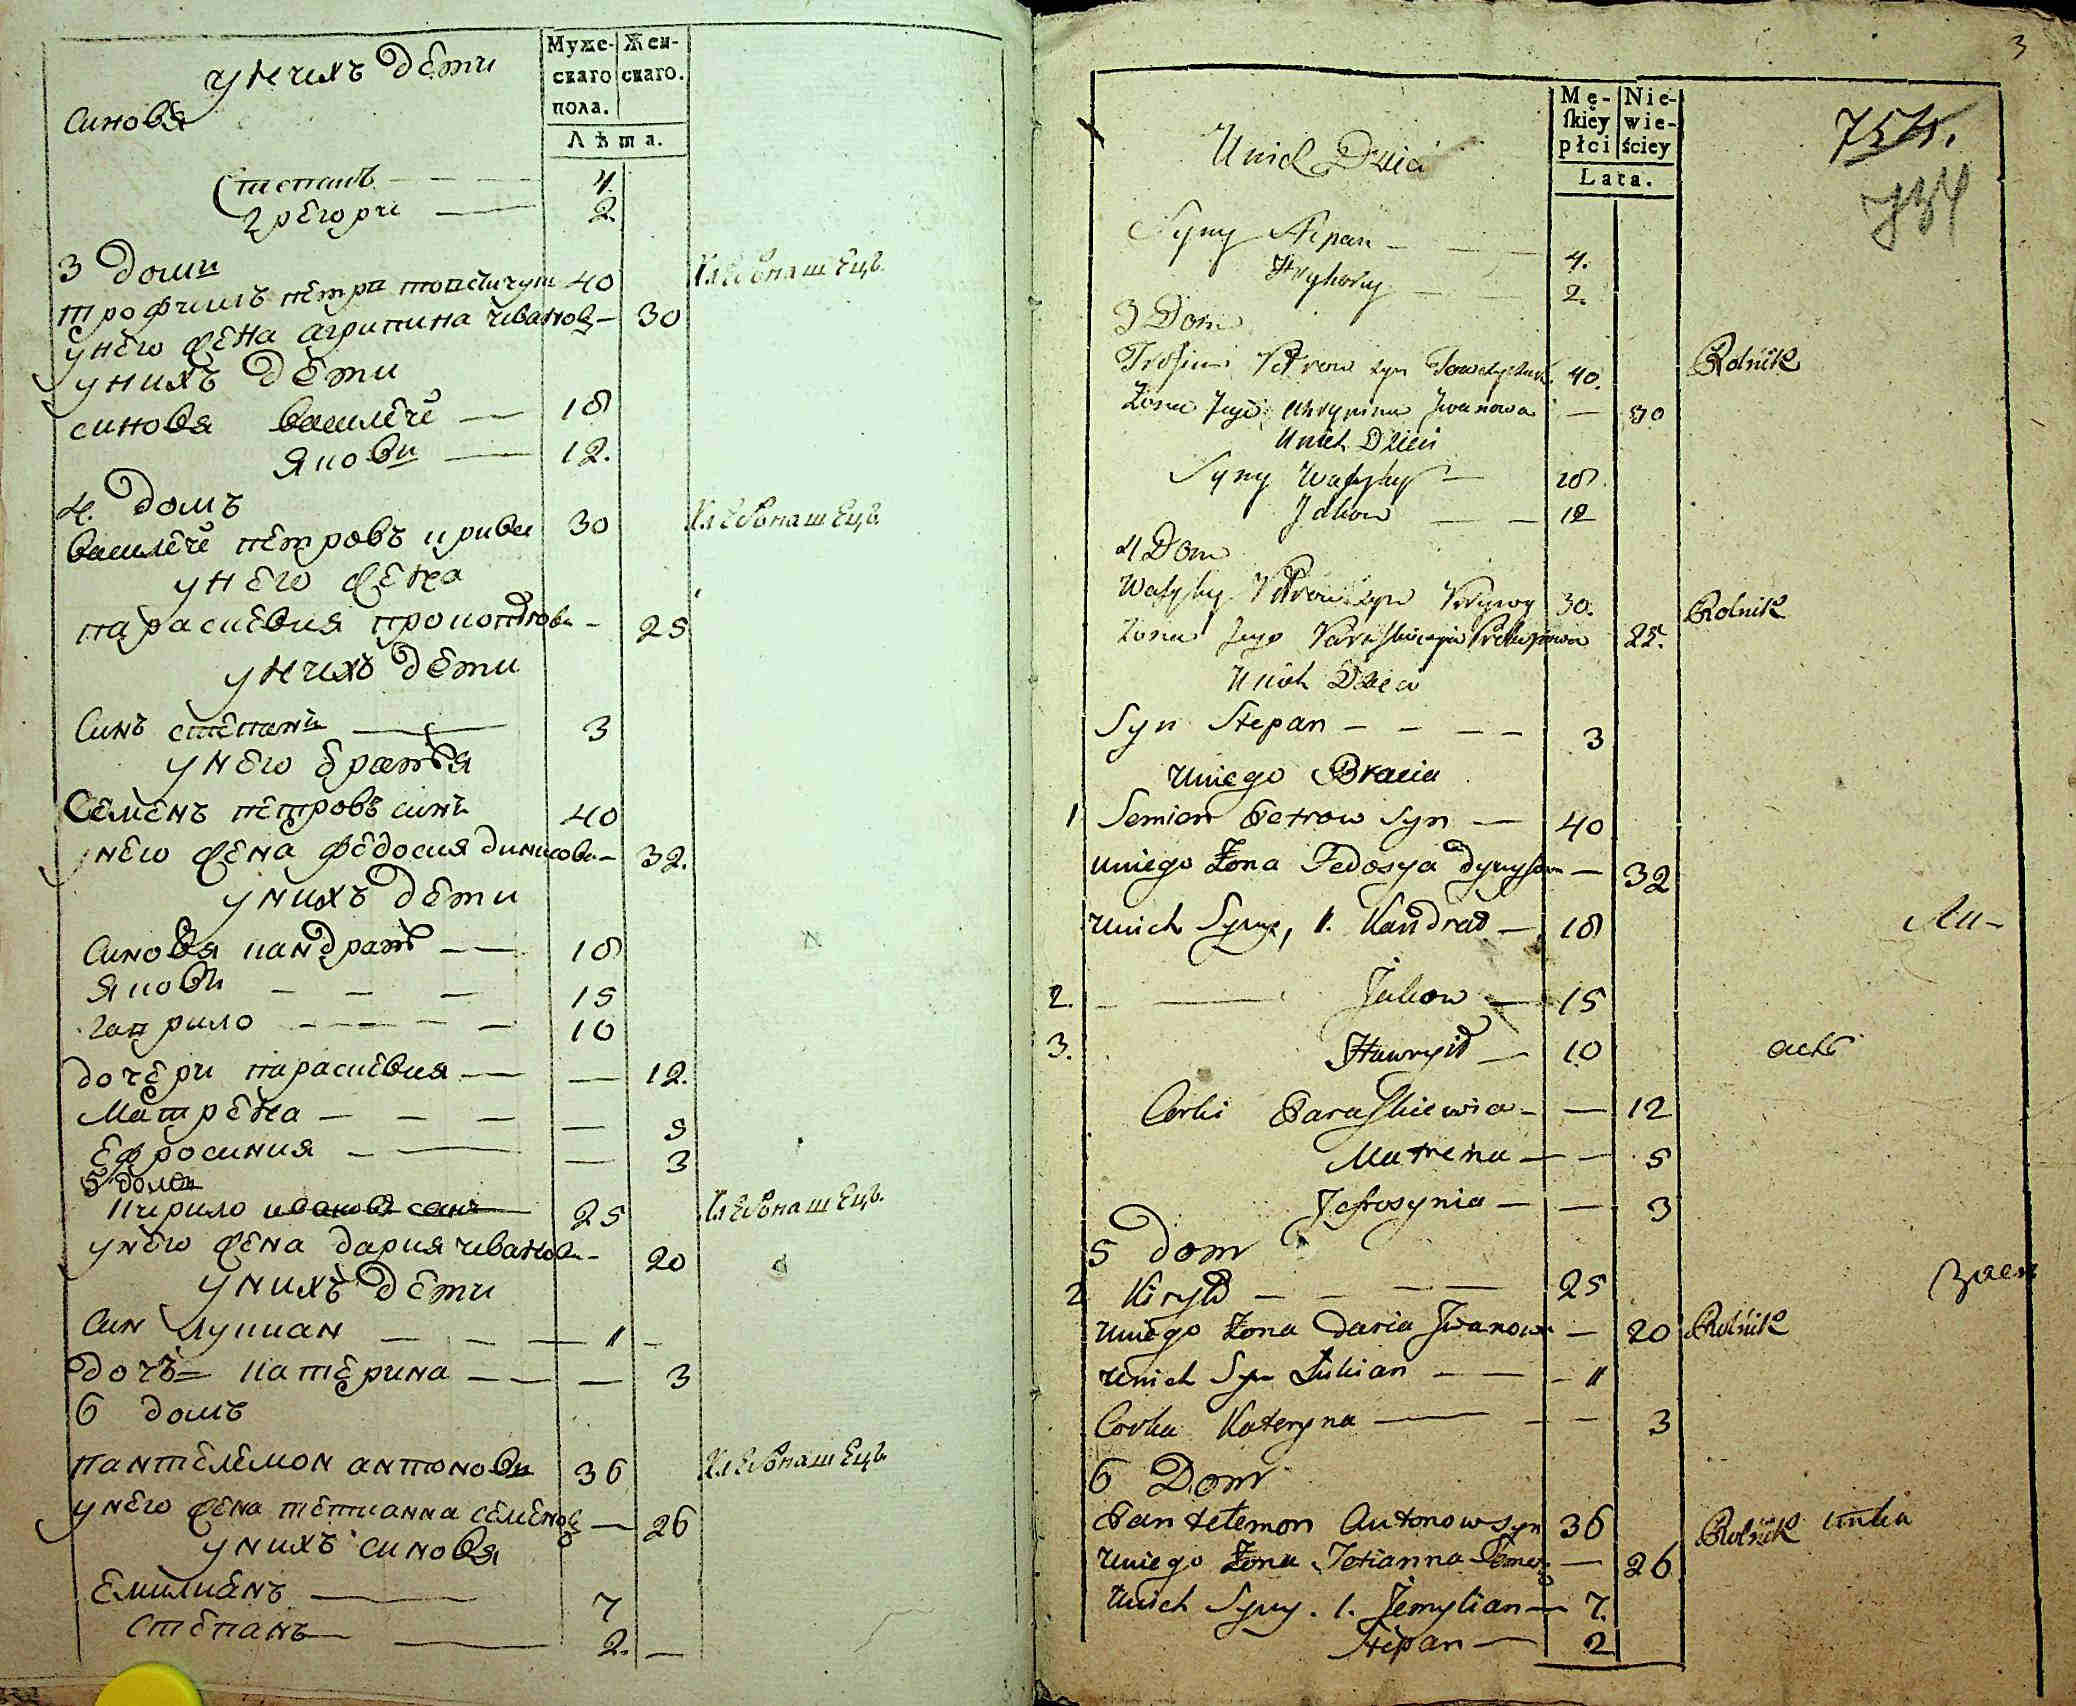 у нихъ дети
Муже-
скаго
пола.
Жен-
скаго.
Лѣта.
синовя
Степанъ 4.
Грегори 2.
3 домъ
трофимъ петра 40 Хлебопашецъ
у него жена агрипина иванов — 30
у нихъ дети
синовя василей — 18
яковъ — 12.
4. домъ
василей петровъ 30 Хлебопашецъ
у него жена
параскевия — 25
у нихъ дети
синъ степанъ — 3
у него братья
Семенъ петровъ синъ 40
у него жена федосия динисова — 32.
у нихъ дети
синовя кандратъ — 18
яковъ — — — 15
гаврило — — — 10
дочери параскевия — — 12.
Матрена — — — — 5
ефросиния — — — 3
5 домъ
Кирило иванов синъ 25 Хлебопашецъ
у него жена дария иванова — 20
у нихъ дети
син лукиан — — — 11 —
дочъ = катерина — — — 3
6 домъ
пантелемон антоновъ 36 Хлебопашецъ
у него жена тетианна семенов — 26
у нихъ синовя
емилианъ — 7
степанъ — — 2. —
3
Mę-
skiey
płci
Nie-
wie-
ściey
Lata.
754.
734
U nich Dzieci
Syny Stepan — — — 4.
Hryhory — — 2.
3 Dom
Trofim Petrow syn 40. Rolnik
Żona Jego Ahrypina Jwanowa — 30
U nich Dzieci
Syny Wasyly — 18.
Jakow — — 12
4 Dom
Wasyly Petrow syn 30. Rolnik
Żona Jego Paraskiewia 25.
U nich Dzieci
Syn Stepan — — — — 3
u niego Bracia
1 Semien Petrow Syn — 40
u niego Żona Fedosya Dynysow — 32
u nich Syny, 1. Kandrad — 18
2. — — Jakow — 15
3. Hawryło — 10
Corki Paraskiewia — — 12
Matrena — — 5
Jefrosynia — — 3
5 Dom
2 Kiryło — — — — 25
u niego Żona Daria Jwanow — 20 Rolnik
u nich Syn Lukian — — — 11
Corka Kateryna — — — 3
6 Dom
Pantelemon Antonow syn 36 Rolnik
u niego Żona Tetianna Semen — 26
u nich Syny. 1. Jemylian — 7.
Stepan — 2